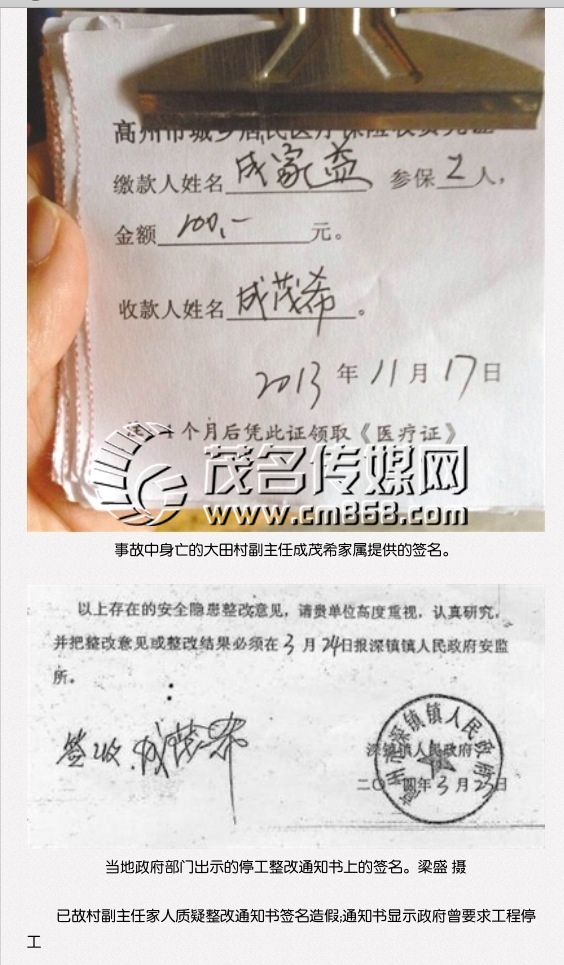 高州市城乡居民医疗保险收费凭证
缴款人姓名 成家益 参保 2 人，
金额 100.- 元。
收款人姓名 成茂希 。
2013 年 11 月 17 日
个月后凭此证领取《医疗证》
茂名传媒网
www.cm868.com
事故中身亡的大田村副主任成茂希家属提供的签名。
以上存在的安全隐患整改意见，请贵单位高度重视，认真研究，
并把整改意见或整改结果必须在 3 月 24日报深镇镇人民政府安监
所。
签收：成茂希
深镇镇人民政府
二〇一四年 3 月 2 日
州市深镇镇人民政府
当地政府部门出示的停工整改通知书上的签名。梁盛 摄
已故村副主任家人质疑整改通知书签名造假;通知书显示政府曾要求工程停
工